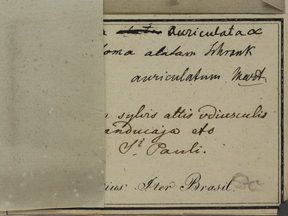 a alata auriculata α
oma alatum Schrank
auriculatum Mart
sylvis altis udiusculis
anducaja etc
St Pauli.
ius: Iter Brasil.